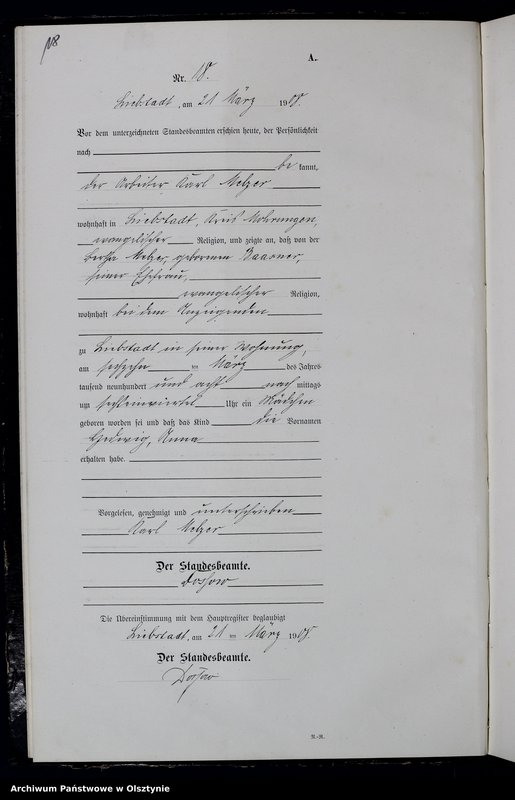 A.
Nr. 18.
Liebstadt, am 21 März 1908.
Vor dem unterzeichneten Standesbeamten erschien heute, der Persönlichkeit
nach
be kannt,
der Arbeiter Karl Melzer
wohnhaft in Liebstadt, Kreis Mohrungen,
evangelischer Religion, und zeigte an, daß von der
Melzer, geborenen
seiner Ehefrau,
evangelischer Religion,
wohnhaft bei dem Anzeigenden
zu Liebstadt in seiner Wohnung,
am sechzehn ten März des Jahres
tausend neunhundert und acht nach mittags
um Uhr ein Mädchen
geboren worden sei und daß das Kind die Vornamen
Hedwig, Anna
erhalten habe.
Vorgelesen, genehmigt und unterschrieben
Karl Melzer
Der Standesbeamte.
Die Übereinstimmung mit dem Hauptregister beglaubigt
Liebstadt, am 21 ten März 1908.
Der Standesbeamte.
Archiwum Państwowe w Olsztynie